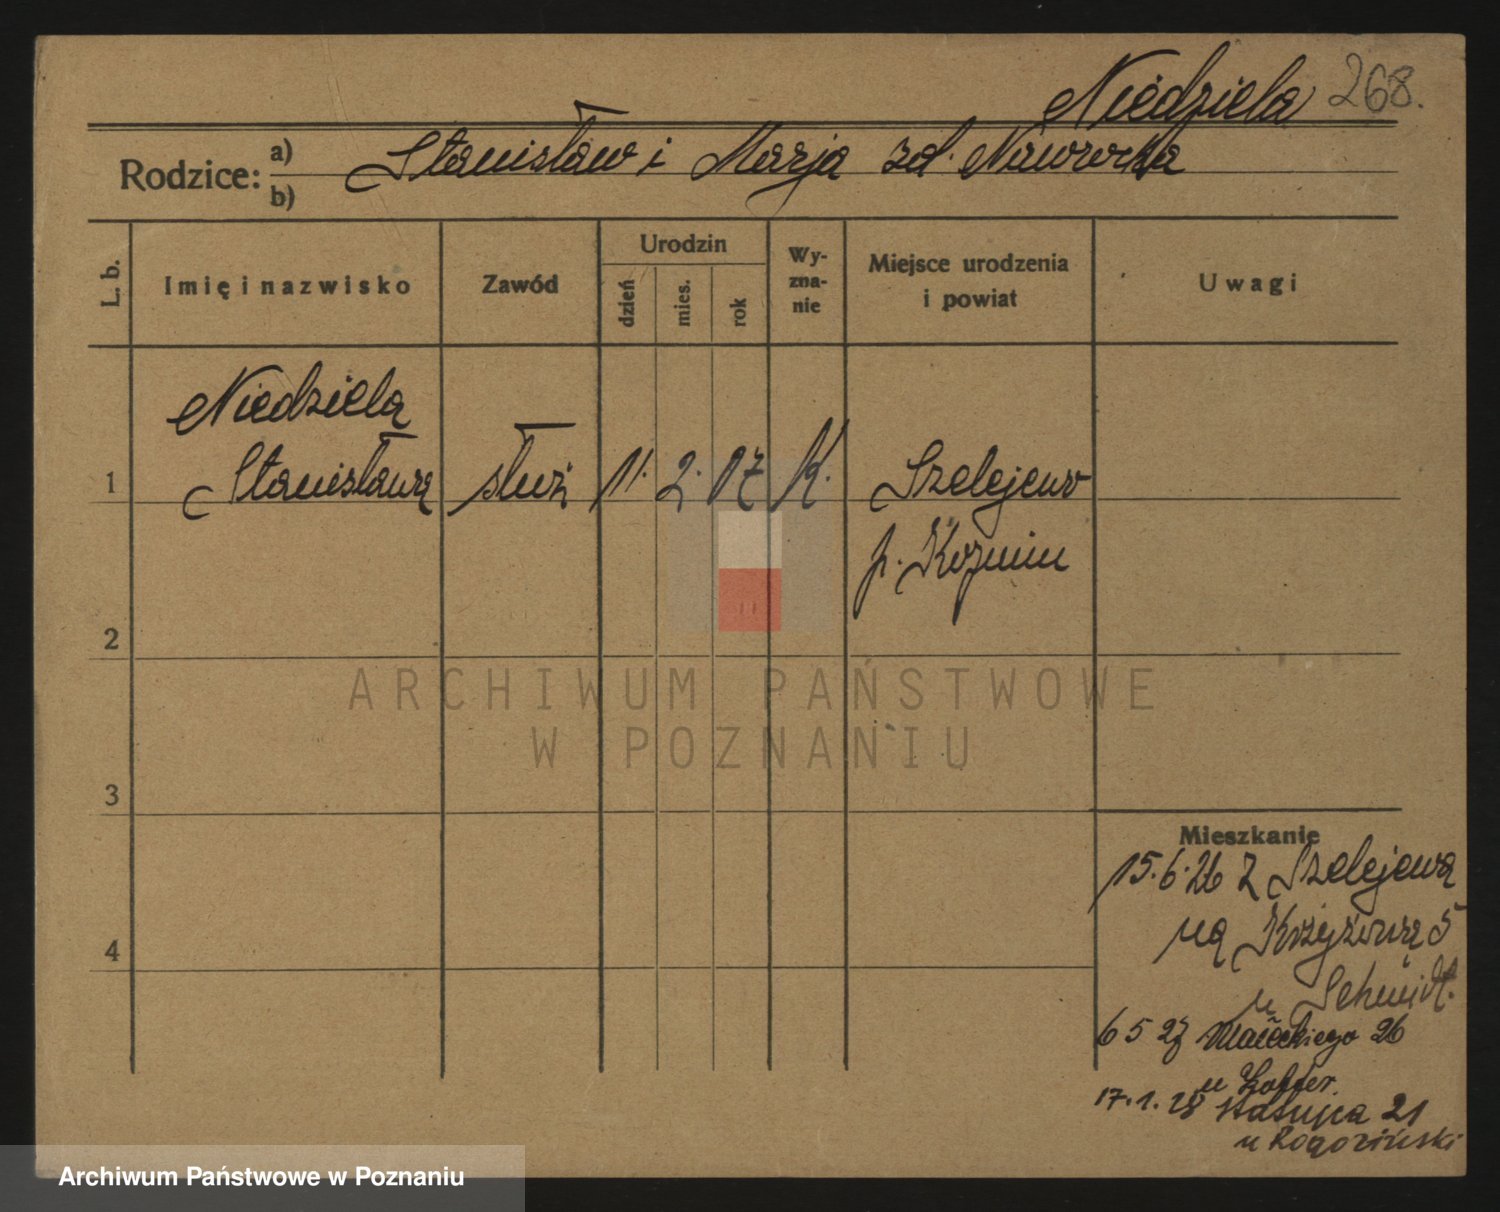 Niedziela 268.
Rodzice: a) b) Stanisław i Marja zd. Nawrocka
L. b.
Imię i nazwisko
Zawód
Urodzin
dzień
mies.
rok
Wy-
zna-
nie
Miejsce urodzenia
i powiat
Uwagi
Niedziela
1 Stanisława służ 11. 2. 07 K. Szelejewo
p. Koźmin
2
ARCHIWUM PAŃSTWOWE
W POZNANIU
3
Mieszkanie
15.6.26 z Szelejewa
na Krzyżową 5
4
u Schmidt.
6 5 27 Małeckiego 26
u
17.1.28 21
u Rogoziński
Archiwum Państwowe w Poznaniu